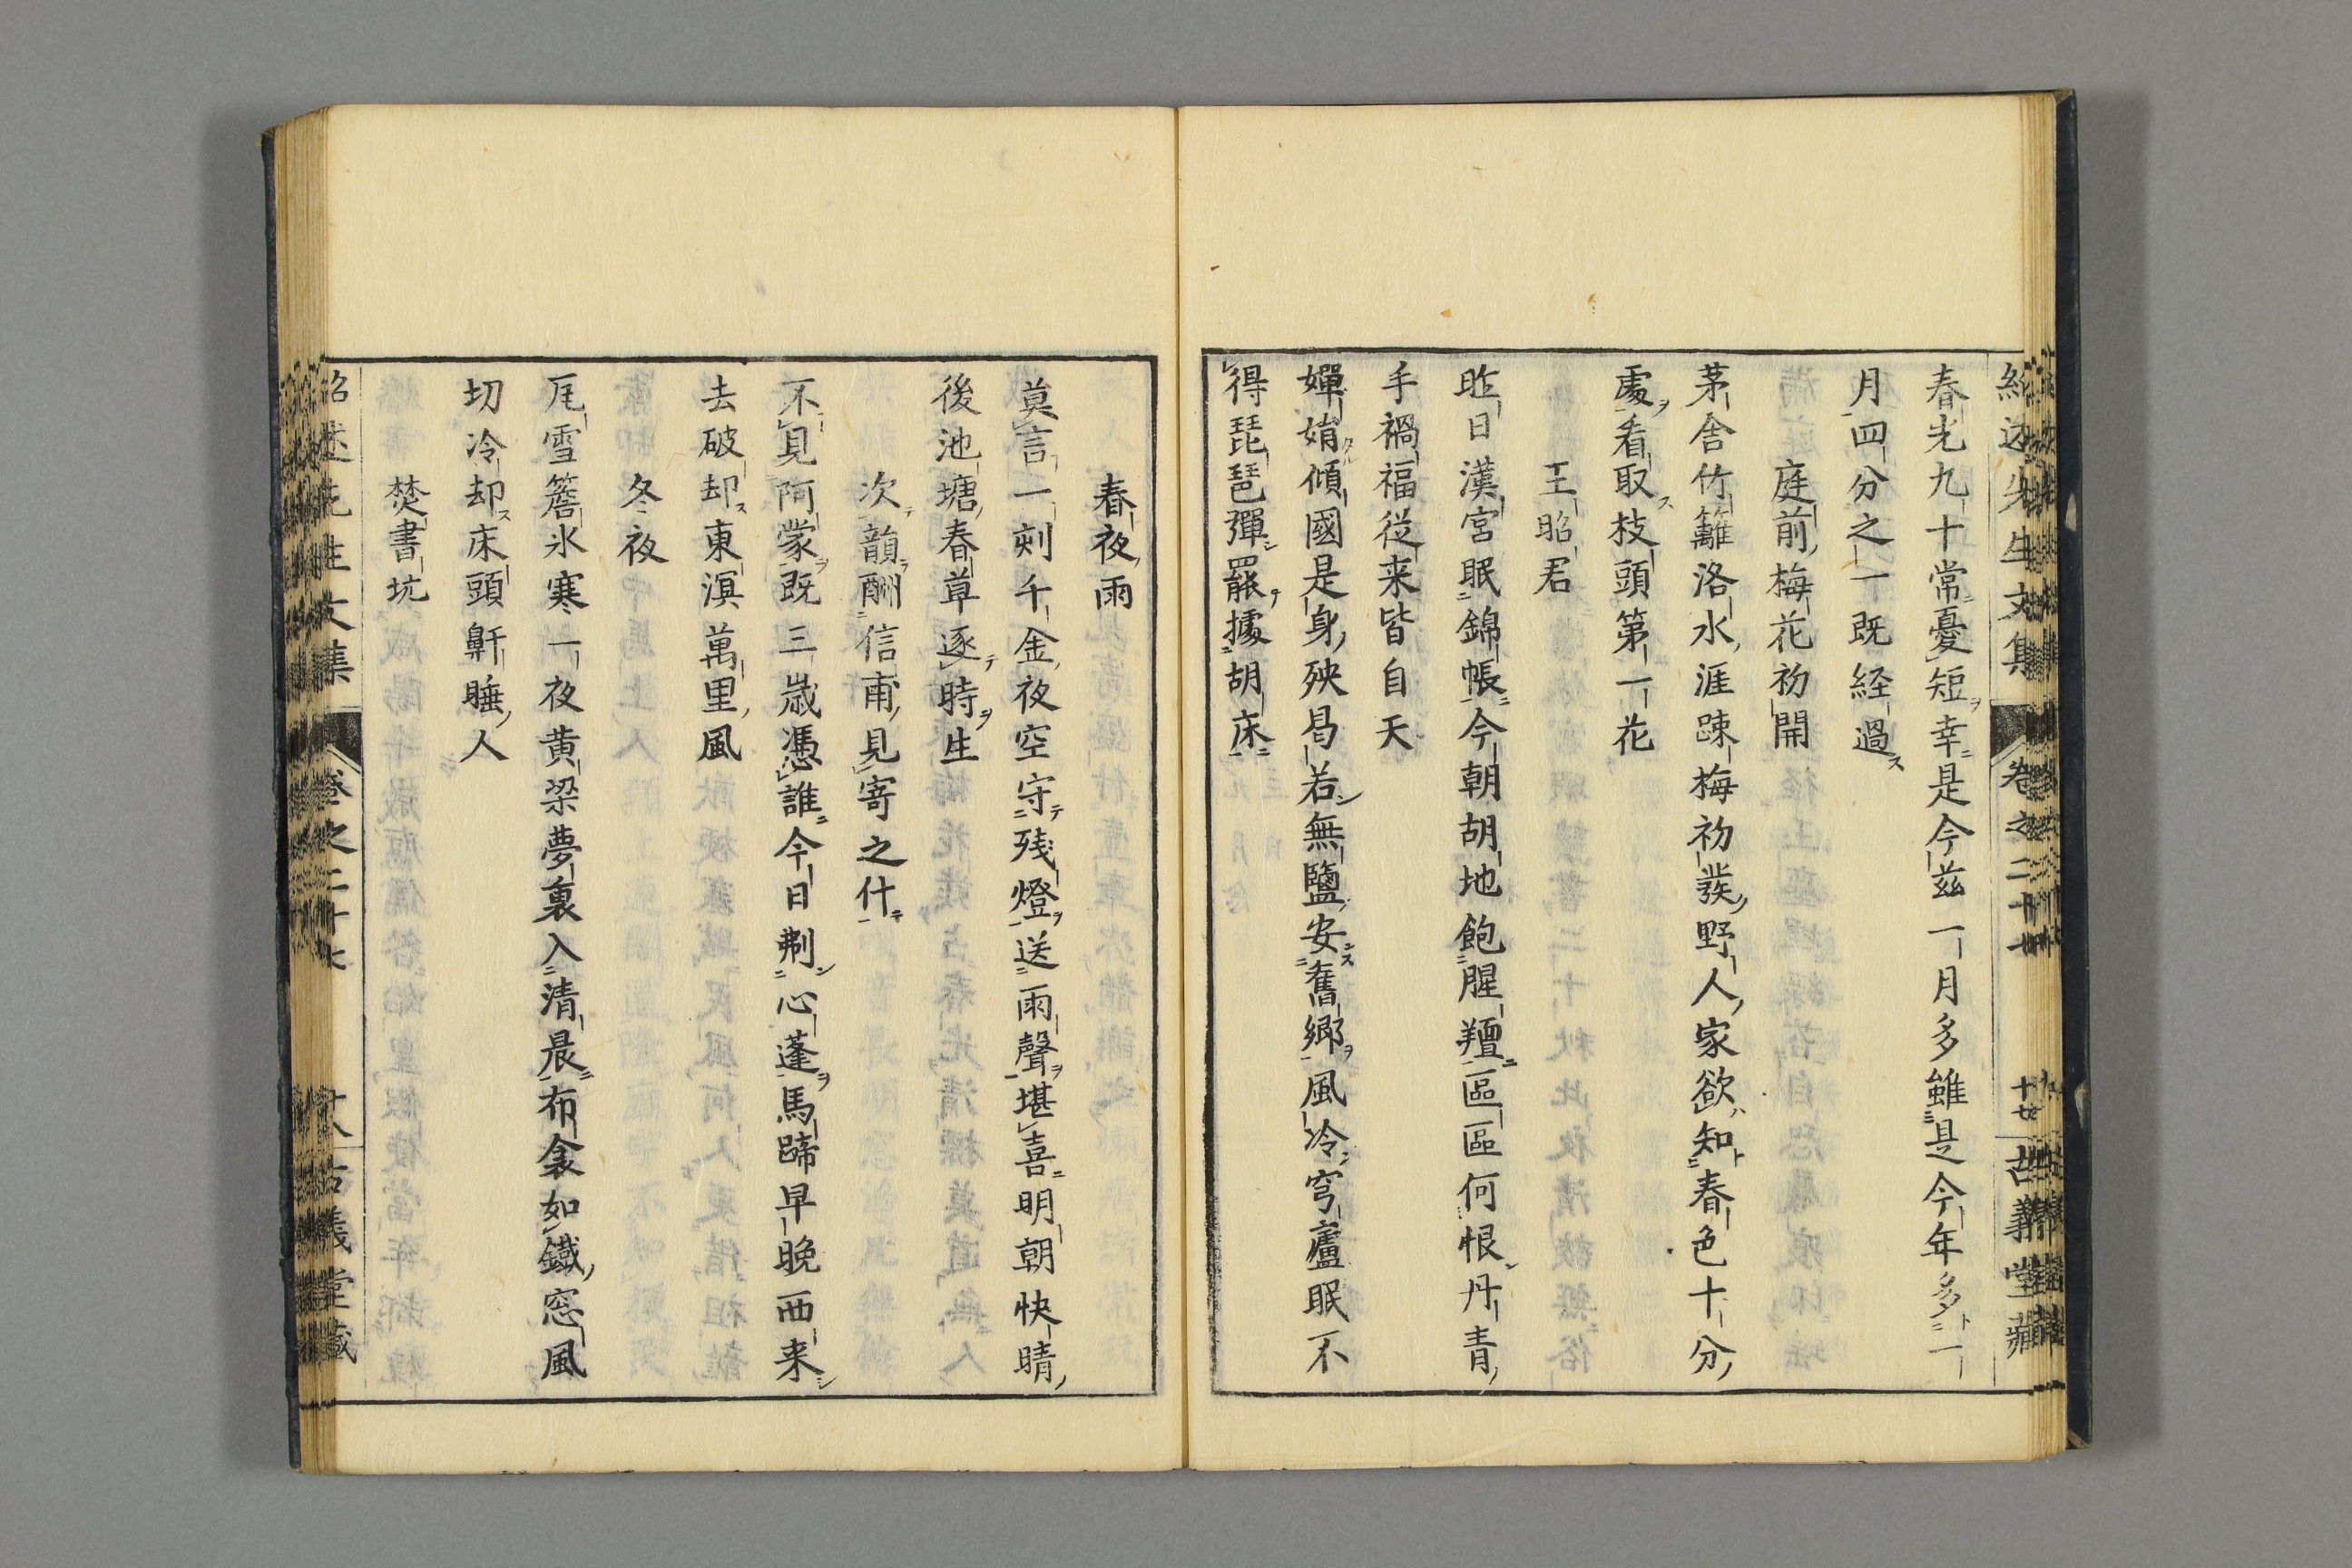 紹述先生文集 卷之二十七 十七 古義堂藏
春光九十常憂短幸是今茲一月多雖是今年多一
月四分之一既経過
庭前梅花初開
茅舎竹籬洛水涯踈梅初發野人家欲知春色十分
處看取枝頭第一花
王昭君
昨日漢宮眠錦帳今朝胡地飽腥羶區區何恨丹青
手禍福従来皆自天
嬋娟傾國是身殃曷若無鹽安舊郷風冷穹廬眠不
得琵琶彈罷據胡床
春夜雨
莫言一刻千金夜空守残燈送雨聲堪喜明朝快晴
後池塘春草逐時生
次韻酬信甫見寄之什
不見阿蒙既三歳憑誰今日剗心蓬馬蹄早晩西来
去破却東溟萬里風
冬夜
瓦雪簷氷寒一夜黄粱夢裏入清晨布衾如鐵窓風
切冷却床頭鼾睡人
焚書坑
紹述先生文集 卷之二十七 十八 古義堂藏